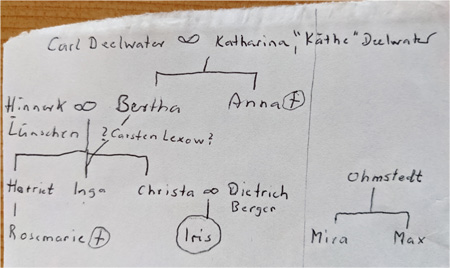 Carl Deelwater ∞ Katharina "Käthe" Deelwater
Hinnerk ∞ Bertha Anna †
Lünschen ? Carsten Lexow ?
Harriet Inga Christa ∞ Dietrich Ohmstedt
Berger
Rosemarie † Iris Mira Max